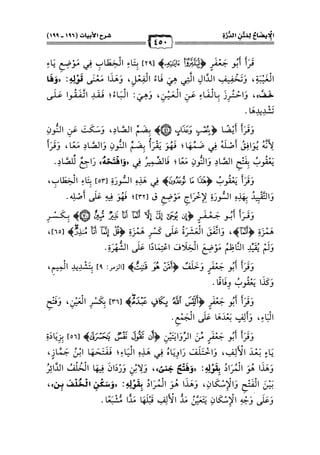 الإيضاح لمتن الدرة
٤٥٠
شرح الأبيات (١٩٦ - ١٩٩)
قَرَأَ أَبُو جَعْفَرٍ [٢٩] بِتَاءِ الخِطَابِ فِي مَوْضِعِ يَاءِ
الْغَيْبَةِ، وَتَخْفِيفِ الدَّالِ الَّتِي هِيَ فَاءُ الْفِعْلِ، وَهَذَا مَعْنَى قَوْلِهِ:
خَفَّ، وَاحْتَرَزَ بِالْفَاءِ عَنِ الْعَيْنِ، وَهِيَ: الْبَاءُ؛ فَقَدِ اتَّفَقُوا عَلَى
تَشْدِيدِهَا.
وَقَرَأَ أَيْضًا بِضَمِّ الصَّادِ، وَسَكَتَ عَنِ النُّونِ
لِأَنَّهُ يُوَافِقُ أَصْلَهُ فِي ضَمِّهَا؛ فَهُوَ يَقْرَأُ بِضَمِّ النُّونِ وَالصَّادِ مَعًا، وَقَرَأَ
يَعْقُوبُ بِفَتْحِ الصَّادِ وَالنُّونِ مَعًا؛ فَالضَّمِيرُ فِي رَاجِعٌ لِلصَّادِ.
وَقَرَأَ يَعْقُوبُ [٥٣] فِي هَذِهِ السُّورَةِ بِتَاءِ الخِطَابِ،
وَالتَّقْيِيدُ بِهَذِهِ السُّورَةِ لِإِخْرَاجِ مَوْضِعِ ق [٣٢]؛ فَهُوَ فِيهِ عَلَى أَصْلِهِ.
وَقَرَأَ أَبُو جَعْفَرٍ بِكَسْرِ
هَمْزَةِ، وَاتَّفَقَ الْعَشَرَةُ عَلَى كَسْرِ هَمْزَةِ [٦٥]،
وَلَمْ يُقَيِّدِ النَّاظِمُ مَوْضِعَ الخِلَافِ اعْتِمَادًا عَلَى الشُّهْرَةِ.
قَرَأَ أَبُو جَعْفَرٍ وَخَلَفٌ [الزمر: ٩] بِتَشْدِيدِ المِيمِ،
وَكَذَا يَعْقُوبُ وِفَاقًا.
وَقَرَأَ أَبُو جَعْفَرٍ [٣٦] بِكَسْرِ الْعَيْنِ، وَفَتْحِ
الْبَاءِ، وَأَلِفٍ بَعْدَهَا عَلَى الْجَمْعِ.
وَقَرَأَ أَبُو جَعْفَرٍ مِنَ الرِّوَايَتَيْنِ [٥٦] بِزِيَادَةِ
يَاءٍ بَعْدَ الأَلِفِ، وَاخْتَلَفَ رَاوِيَاهُ فِي هَذِهِ الْيَاءِ؛ فَفَتَحَهَا ابْنُ جَمَّازٍ،
وَهَذَا هُوَ الْمُرَادُ بِقَوْلِهِ: وَلِابْنِ وَرْدَانَ فِيهَا الْخُلْفُ الدَّائِرُ
بَيْنَ الْفَتْحِ وَالإِسْكَانِ، وَهَذَا هُوَ الْمُرَادُ بِقَوْلِهِ:
وَعَلَى وَجْهِ الإِسْكَانِ يَتَعَيَّنُ مَدُّ الأَلِفِ قَبْلَهَا مَدًّا مُشْبَعًا.